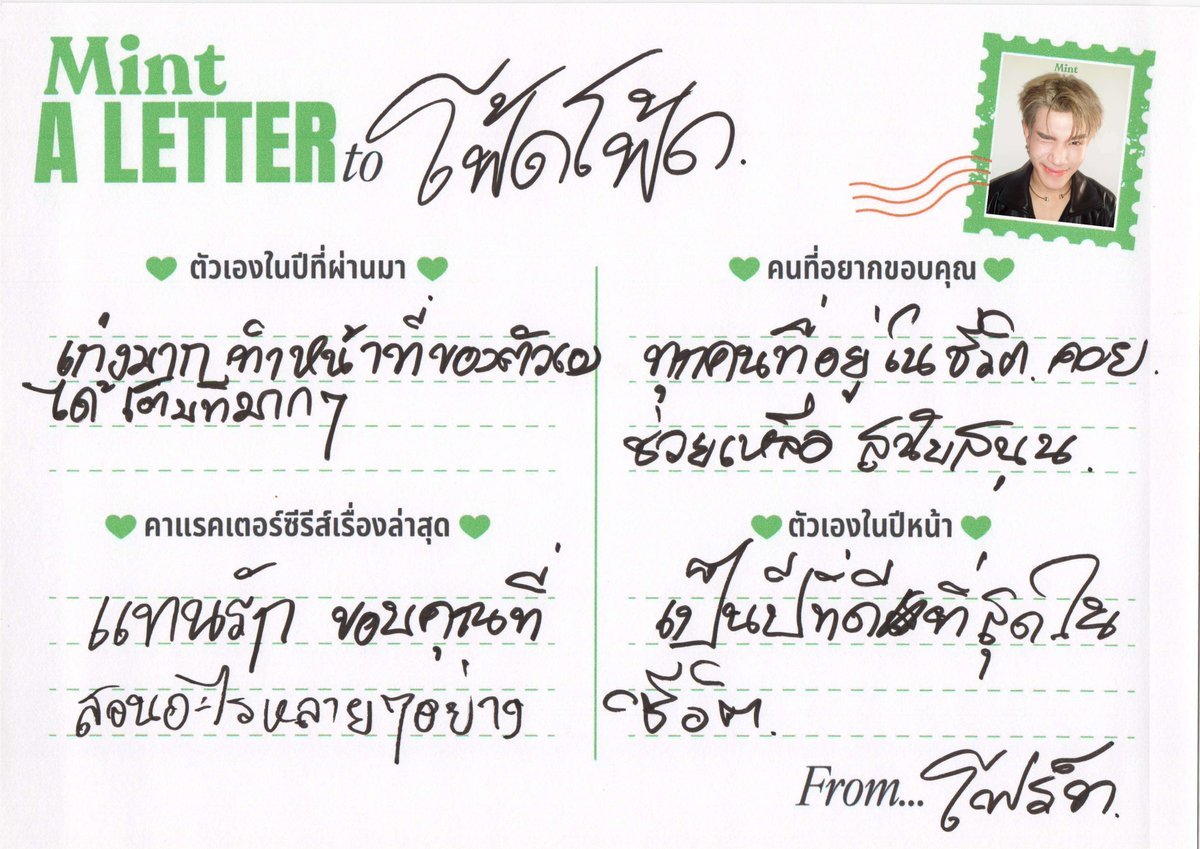 Mint
A LETTER to โฟ้ดโฟ้ด.
Mint
ตัวเองในปีที่ผ่านมา
เก่งมาก ทำหน้าที่ของตัวเอง
ได้ดีมากๆ
คนที่อยากขอบคุณ
ทุกคนที่อยู่ในชีวิต. คอย.
ช่วยเหลือ สนับสนุน.
คาแรคเตอร์ซีรีส์เรื่องล่าสุด
แทนรัก ขอบคุณที่
สอนอะไรหลายๆอย่าง
ตัวเองในปีหน้า
เป็นปีที่ดีที่สุดใน
ชีวิต.
From... โฟร์ท.